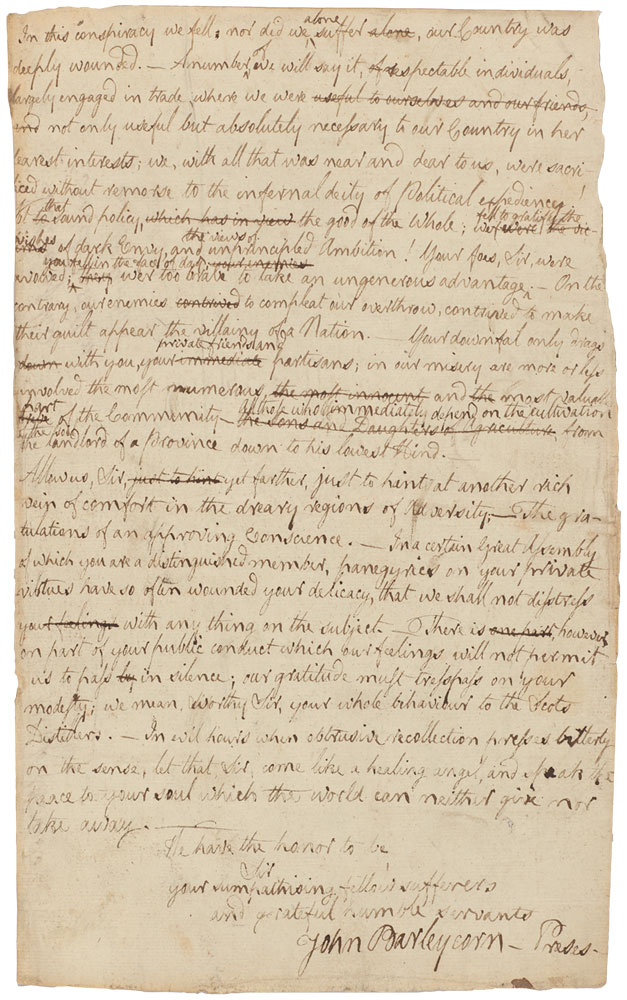 In this conspiracy we fell; nor did we alone suffer alone, our Country was
deeply wounded. — A number, we will say it, of respectable individuals,
largely engaged in trade, where we were useful to ourselves and our friends,
and not only useful but absolutely necessary to our Country in her
dearest interests; we, with all that was near and dear to us, were sacri-
ficed without remorse to the infernal deity of Political expediency!
that sound policy, which has in view the good of the Whole; we fell to gratify the
wishes of dark Envy, and the views of unprincipled Ambition! Your foes, Sir, were
avowed; they were too brave to take an ungenerous advantage; you fell in the face of day your enemies — On the
contrary, our enemies contrived to compleat our overthrow, contrived to make
their guilt appear the villainy of a Nation. — Your downfal only drags
down with you, your immediate private friends and partisans; in our misery are more or less
involved the most numerous, the most innocent and the most valuable
part of the Community — the sons and Daughters of Agriculture all those who immediately depend on the cultivation
of the soil from
the Landlord of a Province down to his lowest Hind. —
Allow us, Sir, just to hint yet farther, just to hint at another rich
vein of comfort in the dreary regions of Adversity; — The gra-
tulations of an approving Conscience. — In a certain Great Assembly
of which you are a distinguished member, panegyrics on your private
virtues have so often wounded your delicacy, that we shall not distress
your feelings with any thing on the subject. — There is one part, however,
on part of your public conduct which our feelings will not permit
us to pass by in silence; our gratitude must tresspass on your
modesty; we mean, worthy Sir, your whole behaviour to the Scots
Distillers. — In evil hours when obtrusive recollection presses bitterly
on the sense, let that, Sir, come like a healing angel, and speak the
peace to your soul which the world can neither give nor
take away. —
We have the honor to be
Sir
your sympathising fellow sufferers
and grateful humble servants
John Barleycorn — Preses —